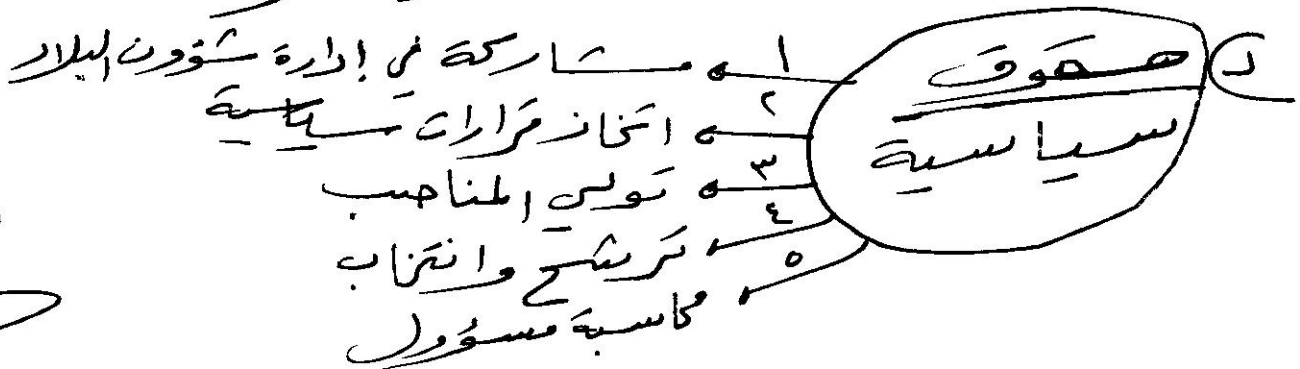 د
حقوق
سياسية
١ مشاركة في إدارة شؤون البلاد
٢ اتخاذ قرارات سياسية
٣ تولي المناصب
٤ ترشح وانتخاب
٥ محاسبة مسؤول